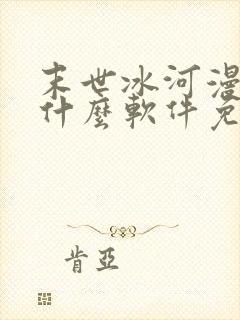 末世冰河漫
什麼軟件免
肯亞